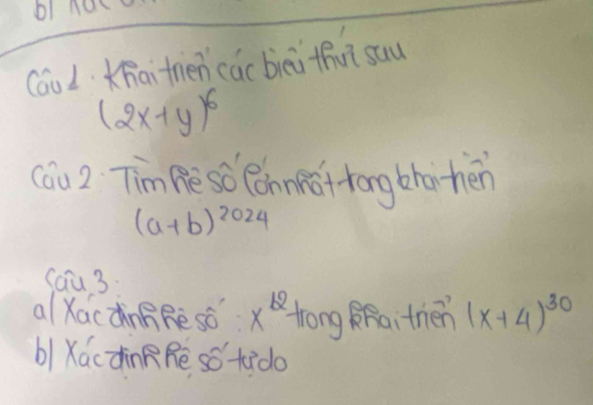 b)
Câu 1. Khai triển các biểu thức sau
(2x+y)^6
Câu 2. Tìm hệ số lớn nhất trong khai triển
(a+b)^2024
Câu 3.
a) Xác định hệ số : x^12 trong khai triển (x+4)^30
b) Xác định hệ số tự do